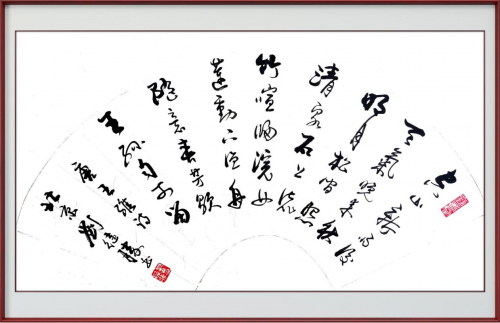 空山新雨後
天氣晚来秋
明月松間照
清泉石上流
竹喧歸浣女
蓮動下漁舟
隨意春芳歇
王孫自可留
唐王維詩
劉德勝书